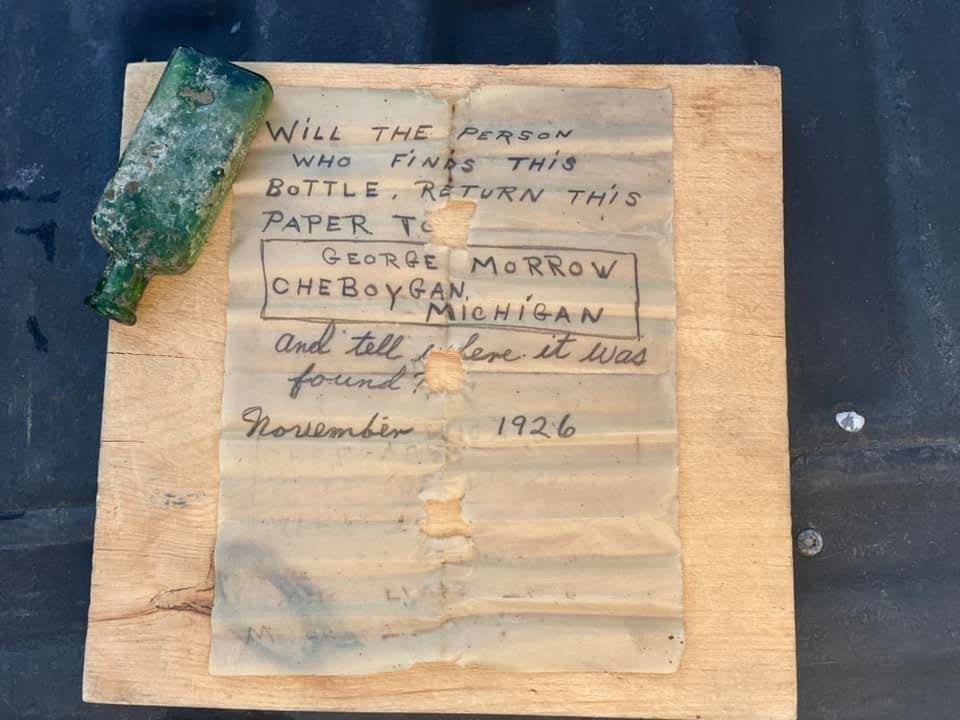 WiLL THE PERSON
WHO FiNDS THiS
BOTTLE, RETURN THiS
PAPER TO
GEORGE MORROW
CHEBOYGAN
MiCHiGAN
and tell where it was
found?
November 1926